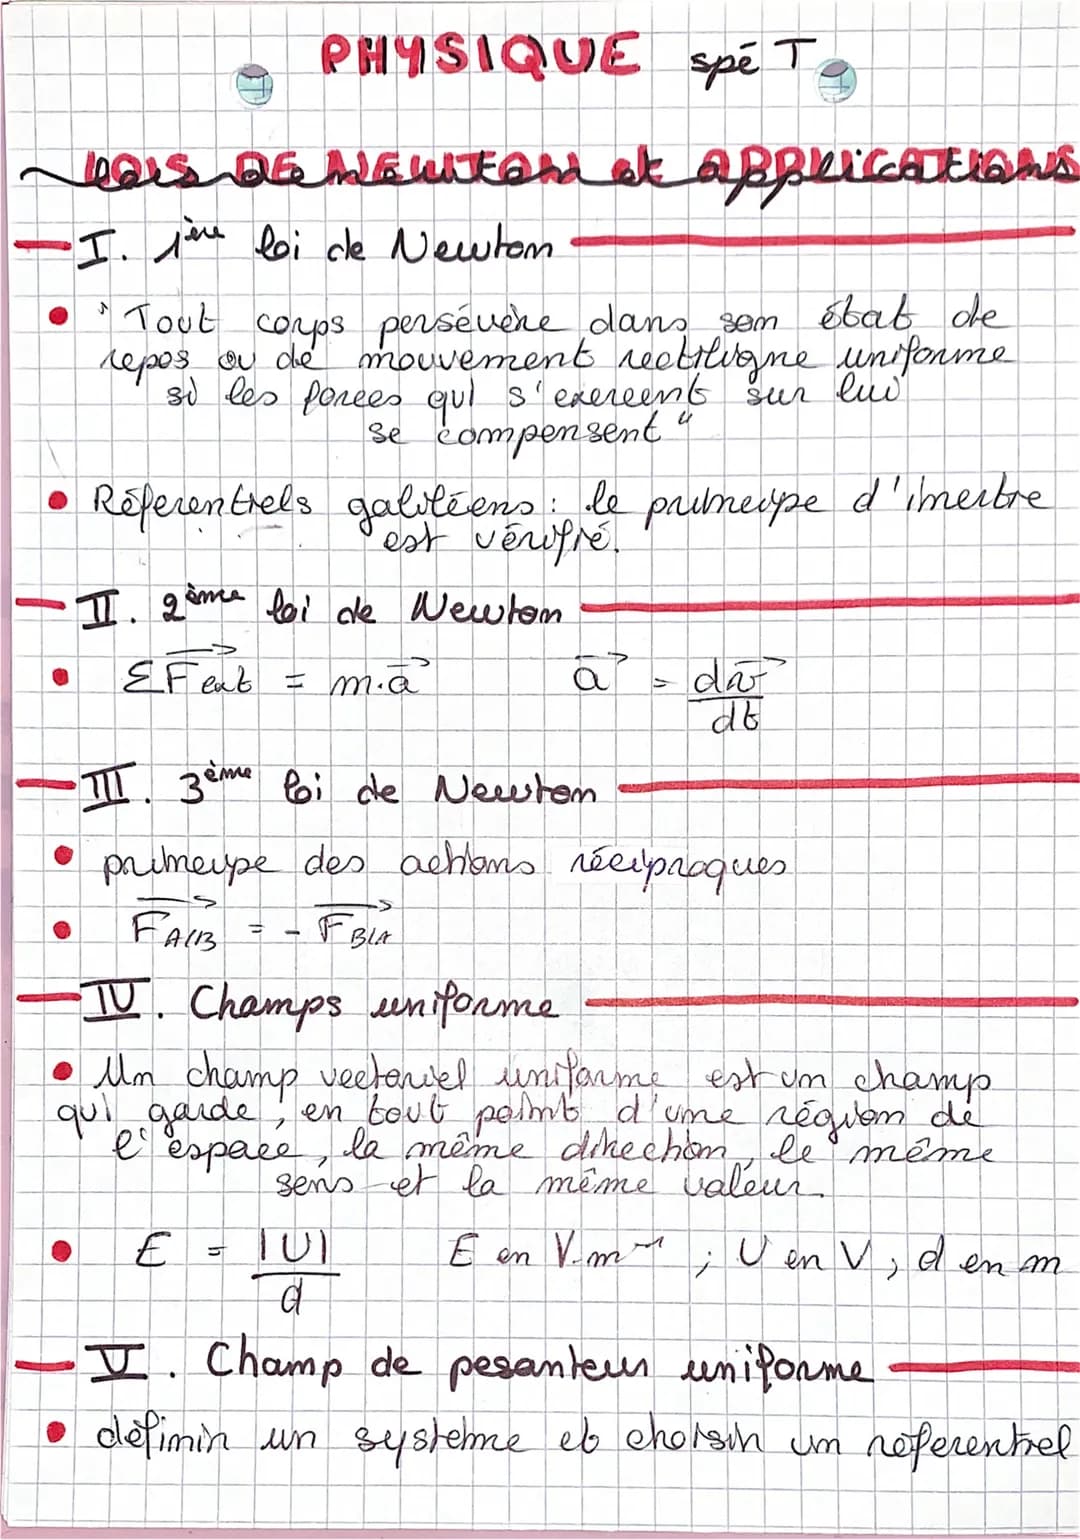 PHYSIQUE spé T
LOIS DE NEWTON et APPLICATIONS
I. 1ère loi de Newton
• "Tout corps persévère dans son état de
repos ou de mouvement rectiligne uniforme
si les forces qui s'exercent sur lui
se compensent"
• Réferentiels galiléens : le principe d'inertie
est vérifié.
II. 2ème loi de Newton
• ΣF⃗ext = m.a⃗ a⃗ = dv⃗/dt
III. 3ème loi de Newton
• principe des actions réciproques
• F⃗A/B = - F⃗B/A
IV. Champs uniforme
• Un champ vectoriel uniforme est un champ
qui garde, en tout point d'une région de
l'espace, la même direction, le même
sens et la même valeur.
• E = |U|/d E en V.m⁻¹ ; U en V ; d en m
V. Champ de pesanteur uniforme
• définir un système et choisir un réferentiel